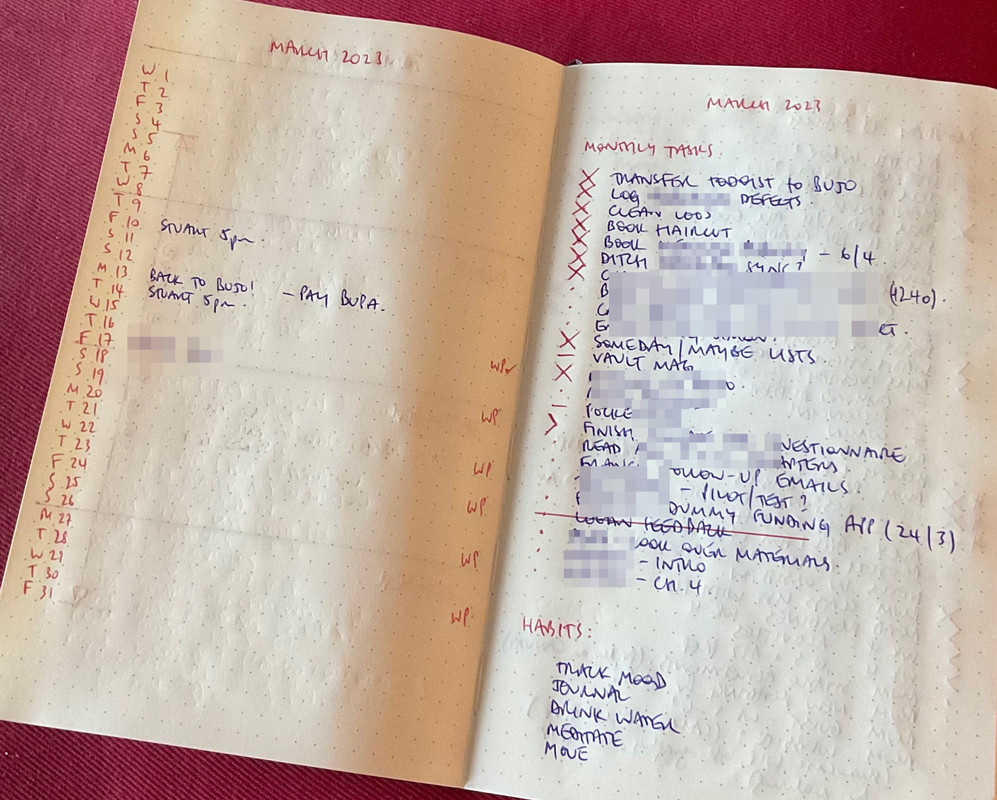 MARCH 2023
W 1
T 2
F 3
S 4
S 5
M 6
T 7
W 8
T 9
F 10 STUART 5pm.
S 11
S 12
M 13 BACK TO BUJO! – PAY BUPA.
T 14 STUART 5pm.
W 15
T 16
F 17
S 18
S 19 WP
M 20
T 21
W 22 WP
T 23
F 24
S 25 WP
S 26
M 27 WP
T 28
W 29 WP
T 30
F 31
WP
MARCH 2023
MONTHLY TASKS
X TRANSFER TODOIST TO BUJO
X LOG DEFECTS.
X CLEAN LOOS
X BOOK HAIRCUT
X BOOK – 6/4.
X DITCH SYNC?
(1240).
X SOMEDAY/MAYBE LISTS
– VAULT MAG
X
–
> FINISH
· READ QUESTIONNAIRE
FOLLOW-UP EMAILS.
– PILOT/TEST?
· DUMMY FUNDING APP (24/3)
LOGAN FEEDBACK
· LOOK OVER MATERIALS.
– INTRO
– CH. 4
HABITS:
TRACK MOOD
JOURNAL
DRINK WATER
MEDITATE
MOVE